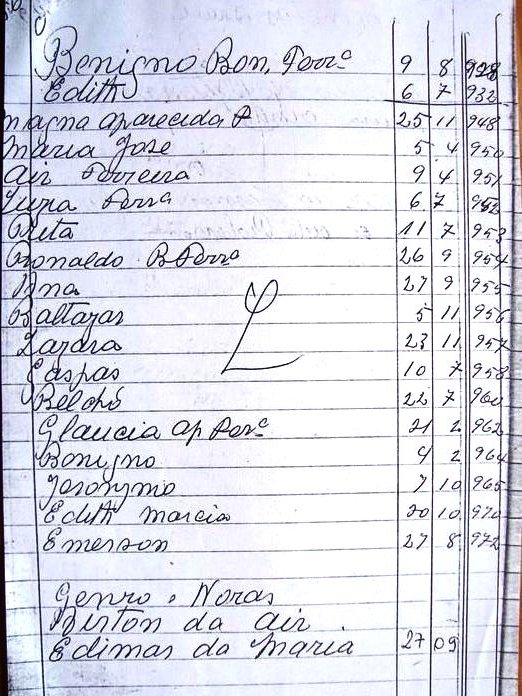 Benigno Bon. Ferrª 9 8 928
Edith 6 7 932
magna aparecida P 25 11 948
Maria José 5 4 950
Air Ferreira 9 4 951
Ferrª 6 7 952
Rita 11 7 953
Ronaldo B Ferrª 26 9 954
Ana 27 9 955
Baltazar 5 11 956
Lazara 23 11 957
Gaspas 10 7 958
Belchó 22 7 960
Glaucia ap Ferª 21 2 962
Benigno 4 2 964
Jeronymo 7 10 965
Edith marcia 20 10 970
Emerson 27 8 972
Genro e Noras
da air.
Edimas da Maria 27 09